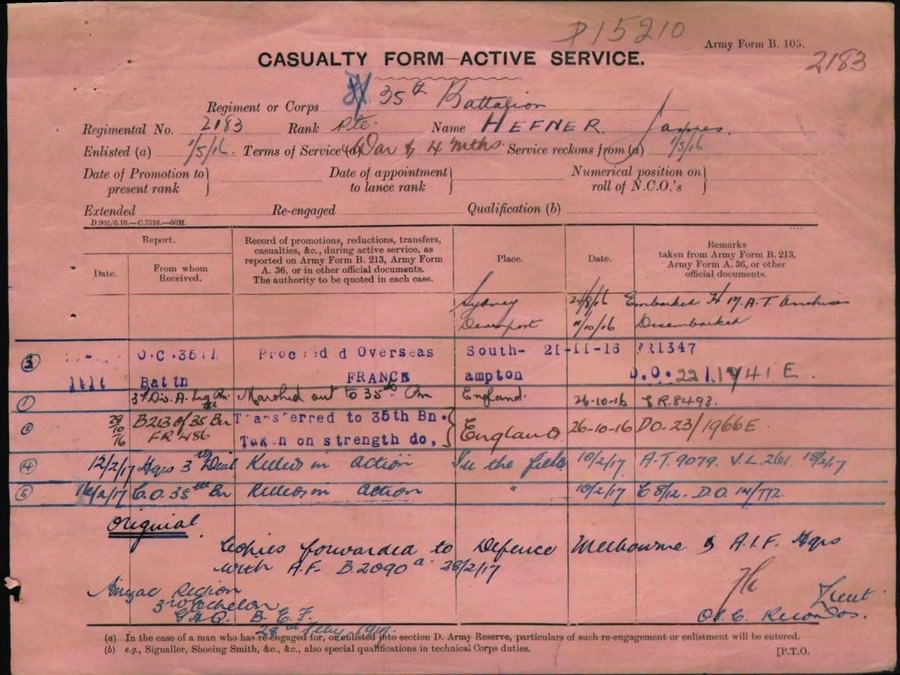 P15210
Army Form B. 103.
2183
CASUALTY FORM—ACTIVE SERVICE.
Regiment or Corps 35th Battalion
Regimental No. 2183 Rank Pte. Name HEFNER. James.
Enlisted (a) 1/5/16. Terms of Service (a) War & 4 mths. Service reckons from (a) 1/5/16
Date of Promotion to present rank } Date of appointment to lance rank } Numerical position on roll of N.C.O.'s }
Extended Re-engaged Qualification (b)
D.902/6.16.—C.7516.—50M.
Report.
Date. From whom Received.
Record of promotions, reductions, transfers, casualties, &c., during active service, as reported on Army Form B. 213, Army Form A. 36, or in other official documents. The authority to be quoted in each case.
Place.
Date.
Remarks taken from Army Form B. 213, Army Form A. 36, or other official documents.
Sydney 24/8/16 Embarked H.M.A.T. Anchises
Devonport 11/10/16 Disembarked
3 O.C.35th Battn Proceeded Overseas FRANCE South-ampton 21-11-16 PR1347 D.O.
1 3rd Div. A. Marched out to 35th Bn England. 26-10-16 8493.
2 29/10/16 B213 of 35 Bn FR 486 Transferred to 35th Bn. Taken on strength do, } England 26-10-16 DO-23/1966E.
4 12/2/17 Hqrs 3rd Killed in action In the field 10/2/17 A.T.9079. V.L.261
5 16/2/17 C.O. 35th Bn Killed in action " 10/2/17 D.O. 14/772.
Original
Copies forwarded to Defence Melbourne & A.I.F. Hqrs
with A.F. B.2090a 28/2/17
Anzac Region
3rd Echelon
G.H.Q. B.E.F.
28th Feby 1917.
Lieut
O.I.C. Records.
(a) In the case of a man who has re-engaged for, or enlisted into section D. Army Reserve, particulars of such re-engagement or enlistment will be entered.
(b) e.g., Signaller, Shoeing Smith, &c., &c., also special qualifications in technical Corps duties.
[P.T.O.